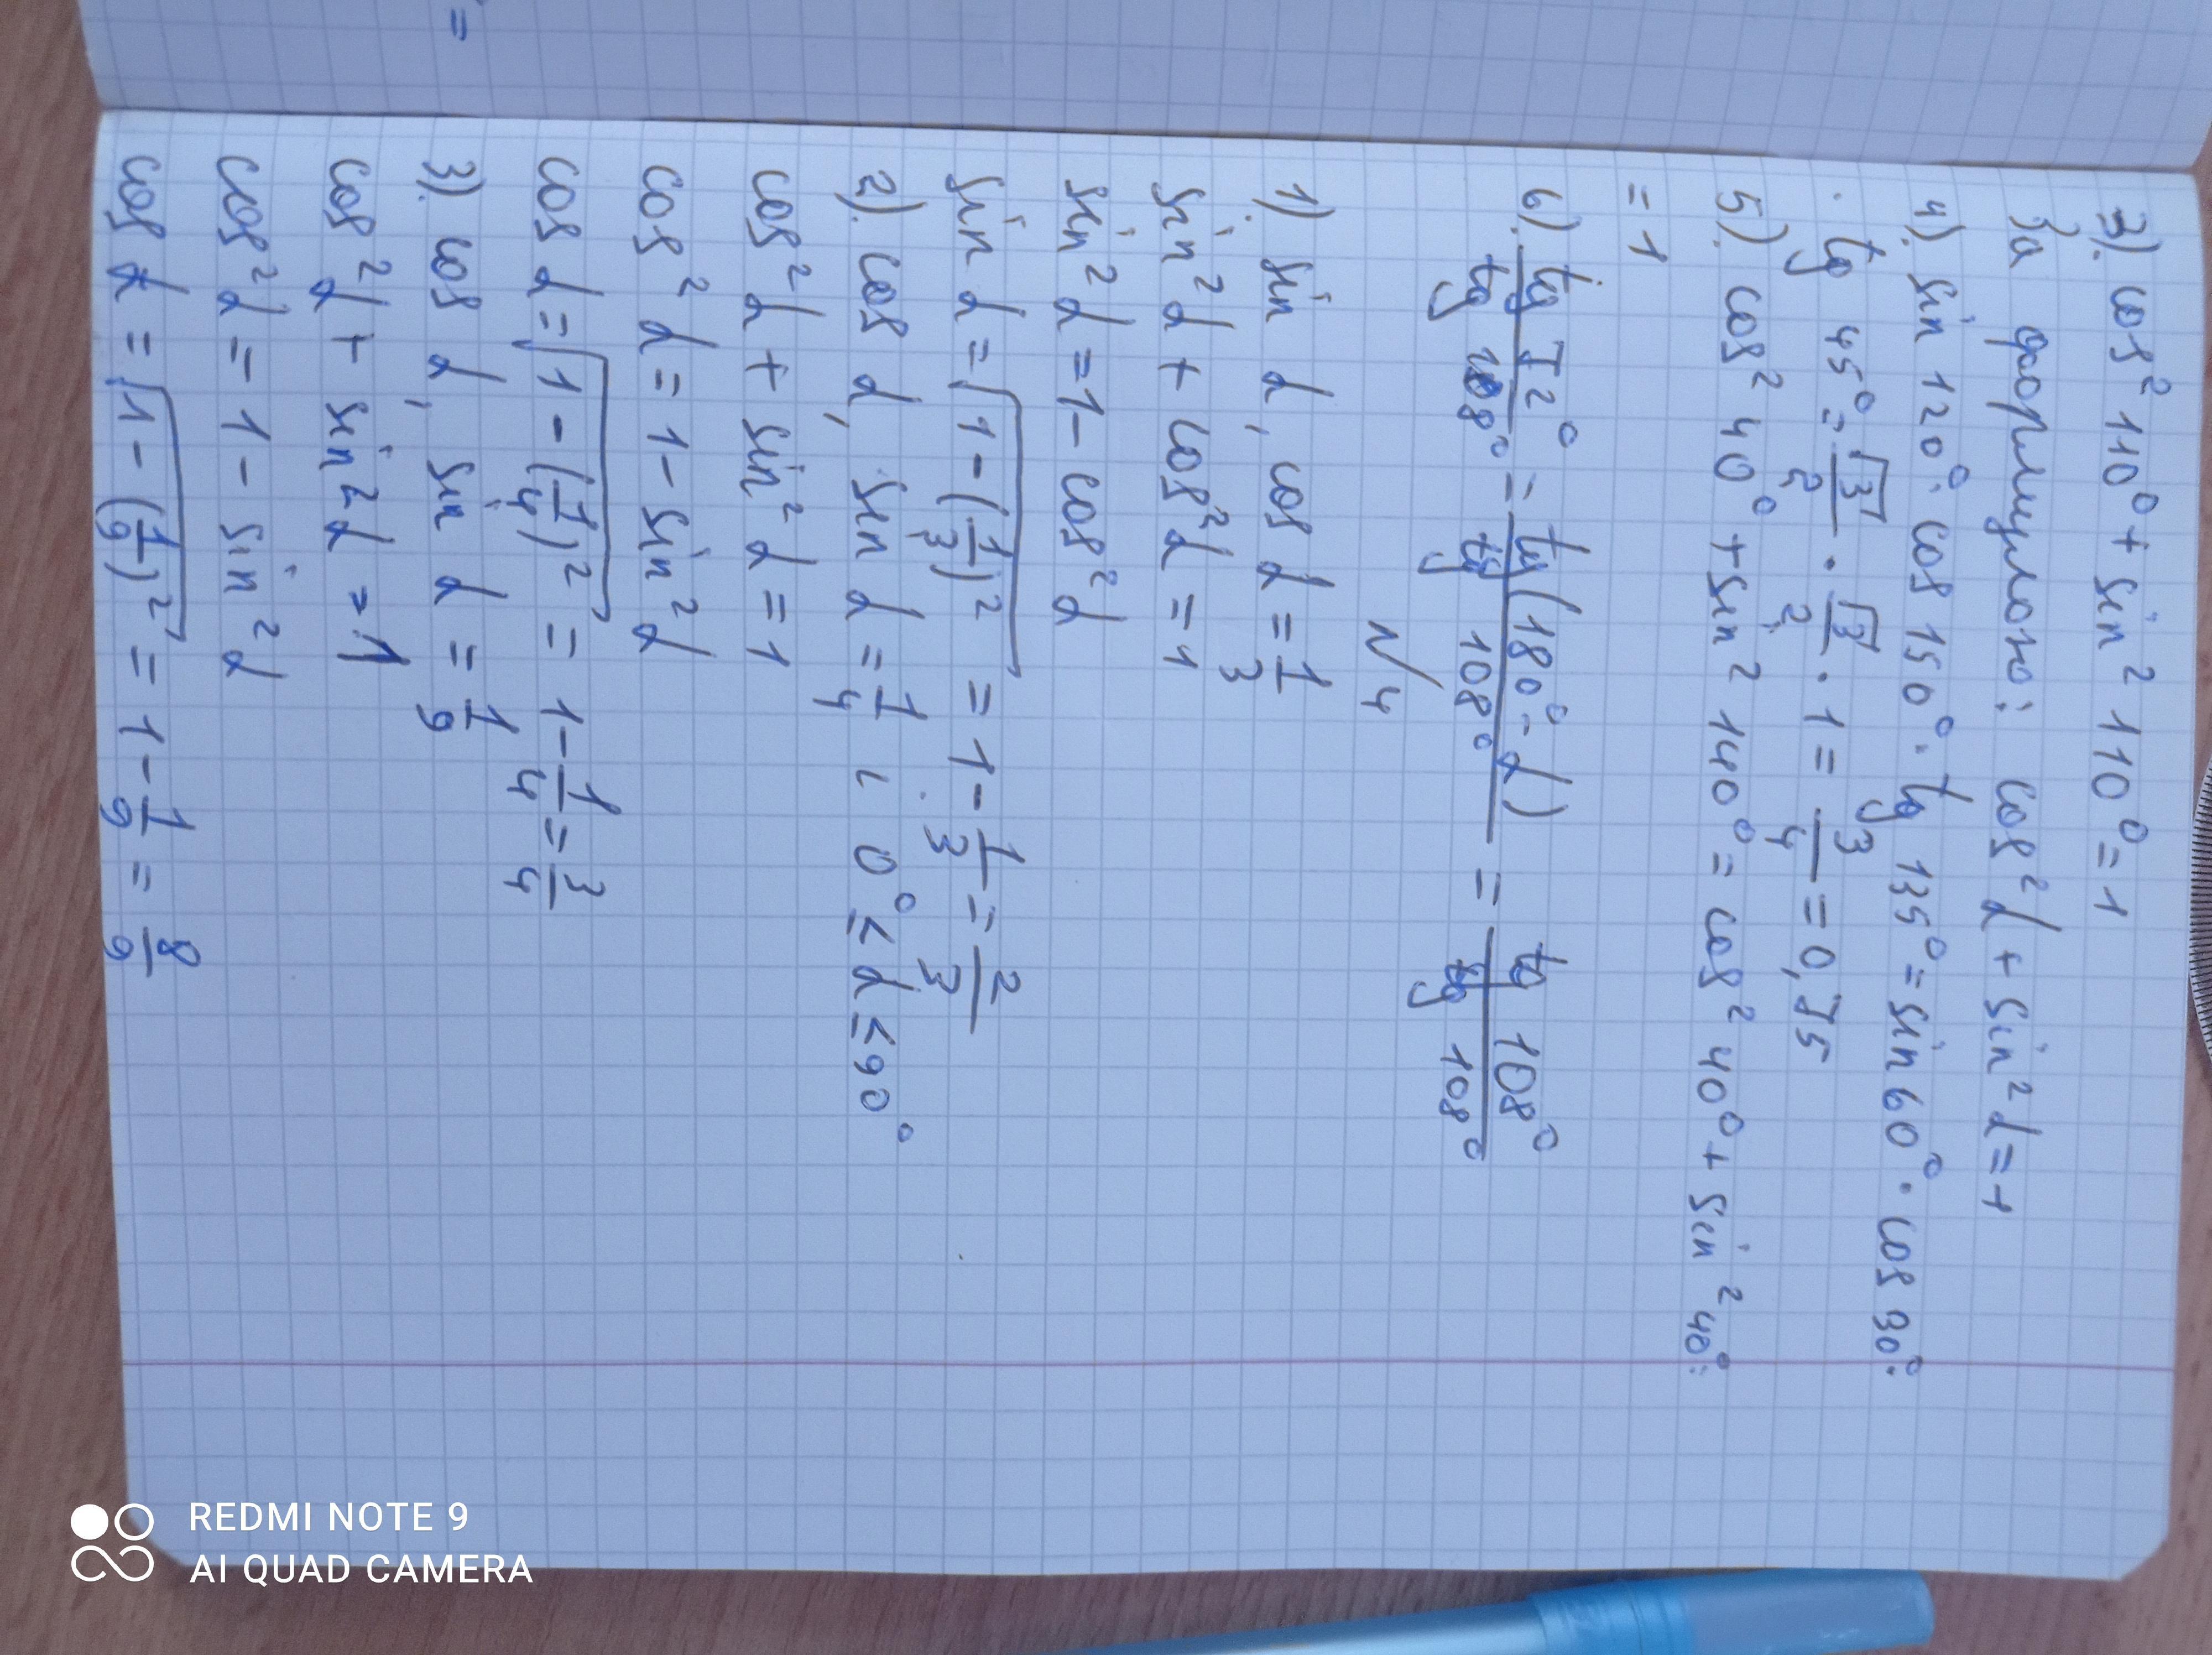 3). cos² 110° + sin² 110° = 1
За формулою: cos² α + sin² α = 1
4). sin 120° · cos 150° · tg 135° = sin 60° · cos 30° ·
· tg 45° = √3/2 · √3/2 · 1 = 3/4 = 0,75
5). cos² 40° + sin² 140° = cos² 40° + sin² 40° =
= 1
6). tg 72°/tg 108° = tg (180° - α)/tg 108° = tg 108°/tg 108°
N4
1). sin α, cos α = 1/3
sin² α + cos² α = 1
sin² α = 1 - cos² α
sin α = √(1 - (1/3)²) = 1 - 1/3 = 2/3
2). cos α, sin α = 1/4 і 0° ≤ α ≤ 90°
cos² α + sin² α = 1
cos² α = 1 - sin² α
cos α = √(1 - (1/4)²) = 1 - 1/4 = 3/4
3). cos α, sin α = 1/9
cos² α + sin² α = 1
cos² α = 1 - sin² α
cos α = √(1 - (1/9)²) = 1 - 1/9 = 8/9
=
REDMI NOTE 9
AI QUAD CAMERA